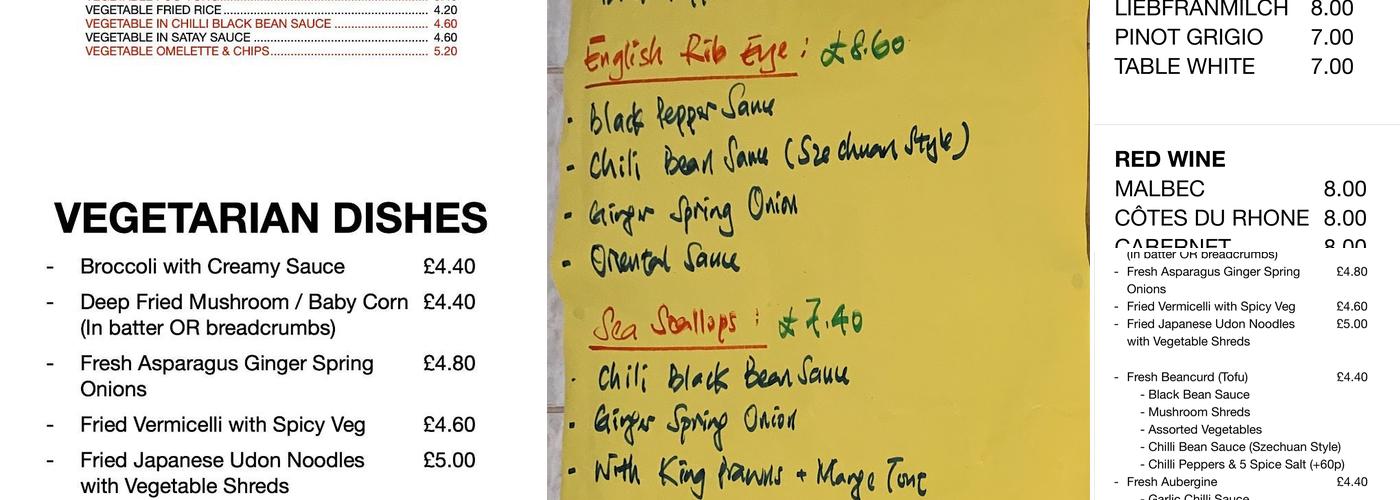 VEGETABLE FRIED RICE 4.20
VEGETABLE IN CHILLI BLACK BEAN SAUCE 4.60
VEGETABLE IN SATAY SAUCE 4.60
VEGETABLE OMELETTE & CHIPS 5.20
VEGETARIAN DISHES
- Broccoli with Creamy Sauce £4.40
- Deep Fried Mushroom / Baby Corn £4.40
(In batter OR breadcrumbs)
- Fresh Asparagus Ginger Spring £4.80
Onions
- Fried Vermicelli with Spicy Veg £4.60
- Fried Japanese Udon Noodles £5.00
with Vegetable Shreds
English Rib Eye : £8.60
- Black Pepper Sauce
- Chili Bean Sauce (Szechuan Style)
- Ginger Spring Onion
- Oriental Sauce
Sea Scallops : £7.40
- Chili Black Bean Sauce
- Ginger Spring Onion
- With King Prawns + Mange Tout
LIEBFRANMILCH 8.00
PINOT GRIGIO 7.00
TABLE WHITE 7.00
RED WINE
MALBEC 8.00
CÔTES DU RHONE 8.00
CABERNET 8.00
(In batter OR breadcrumbs)
- Fresh Asparagus Ginger Spring £4.80
Onions
- Fried Vermicelli with Spicy Veg £4.60
- Fried Japanese Udon Noodles £5.00
with Vegetable Shreds
- Fresh Beancurd (Tofu) £4.40
- Black Bean Sauce
- Mushroom Shreds
- Assorted Vegetables
- Chilli Bean Sauce (Szechuan Style)
- Chilli Peppers & 5 Spice Salt (+60p)
- Fresh Aubergine £4.40
- Garlic Chilli Sauce